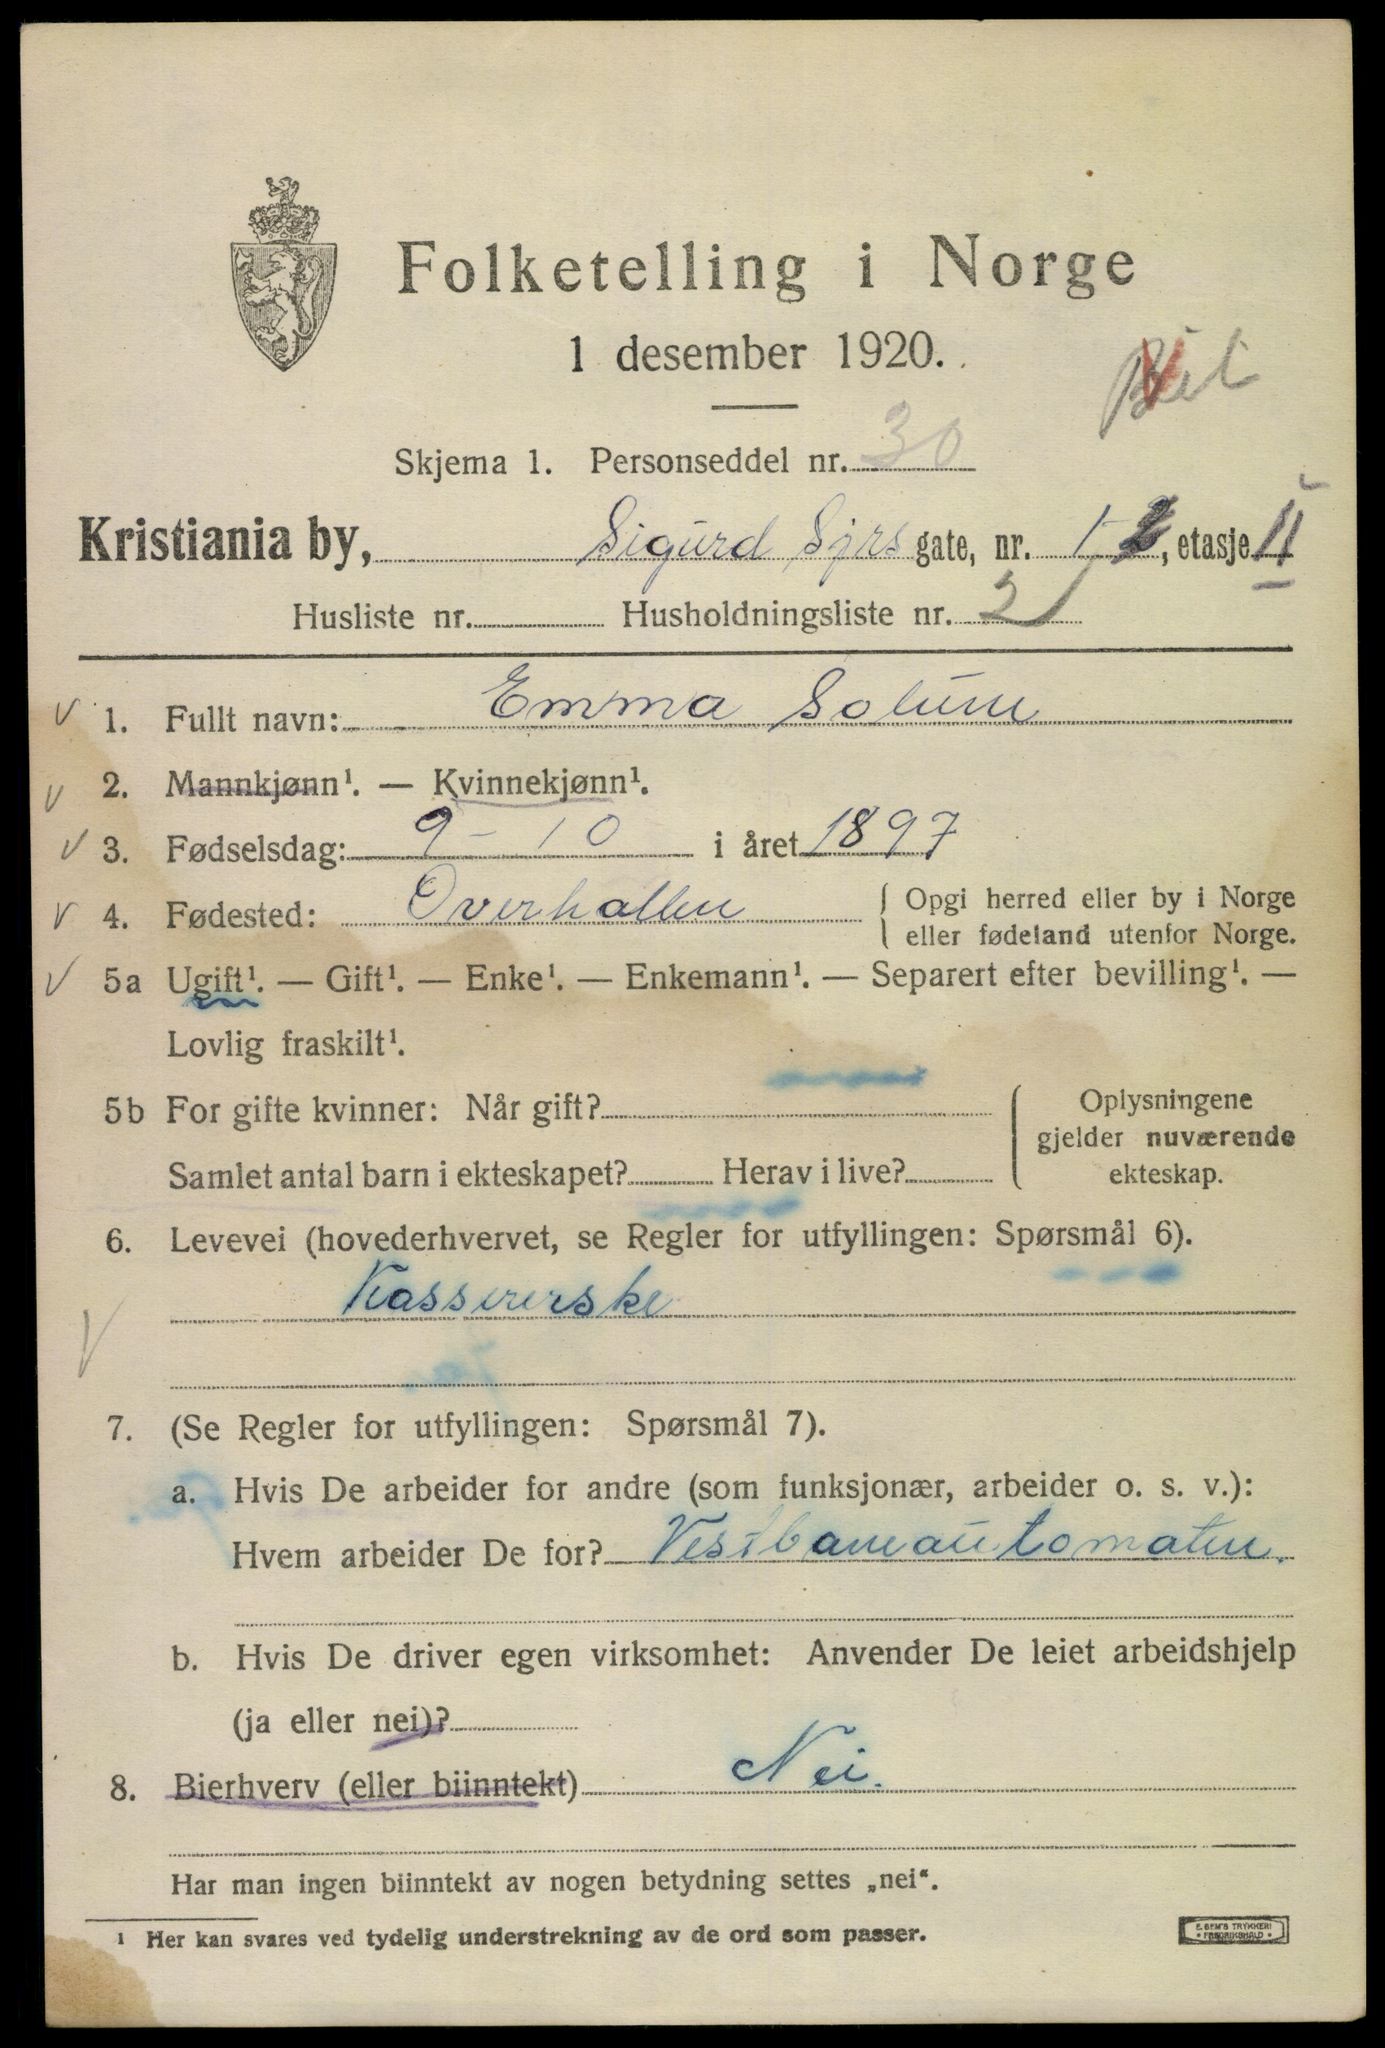 Folketelling i Norge
1 desember 1920.
Skjema 1. Personseddel nr. 30
Kristiania by, Sigurd Syrs gate, nr. 12, etasje II
Husliste nr. Husholdningsliste nr. 2
1. Fullt navn: Emma Solum
2. Mannkjønn¹. — Kvinnekjønn¹.
3. Fødselsdag: 9 - 10 i året 1897
4. Fødested: Overhallen { Opgi herred eller by i Norge
eller fødeland utenfor Norge.
5a Ugift¹. — Gift¹. — Enke¹. — Enkemann¹. — Separert efter bevilling¹. —
Lovlig fraskilt¹.
5b For gifte kvinner: Når gift? { Oplysningene
gjelder nuværende
Samlet antal barn i ekteskapet? Herav i live? ekteskap.
6. Levevei (hovederhvervet, se Regler for utfyllingen: Spørsmål 6).
Kassererske
7. (Se Regler for utfyllingen: Spørsmål 7).
a. Hvis De arbeider for andre (som funksjonær, arbeider o. s. v.):
Hvem arbeider De for? Vestbaneautomaten.
b. Hvis De driver egen virksomhet: Anvender De leiet arbeidshjelp
(ja eller nei)?
8. Bierhverv (eller biinntekt) Nei.
Har man ingen biinntekt av nogen betydning settes „nei“.
¹ Her kan svares ved tydelig understrekning av de ord som passer.
E. SEM'S TRYKKERI
FREDRIKSHALD